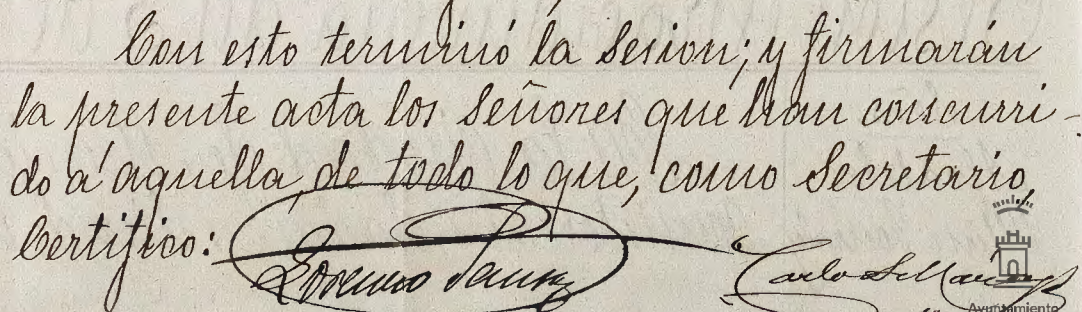 Con esto terminó la Sesion; y firmarán
la presente acta los Señores que han concurri-
do á aquella, de todo lo que, como Secretario,
Certifico:
Lorenzo Sanz
Ayuntamiento